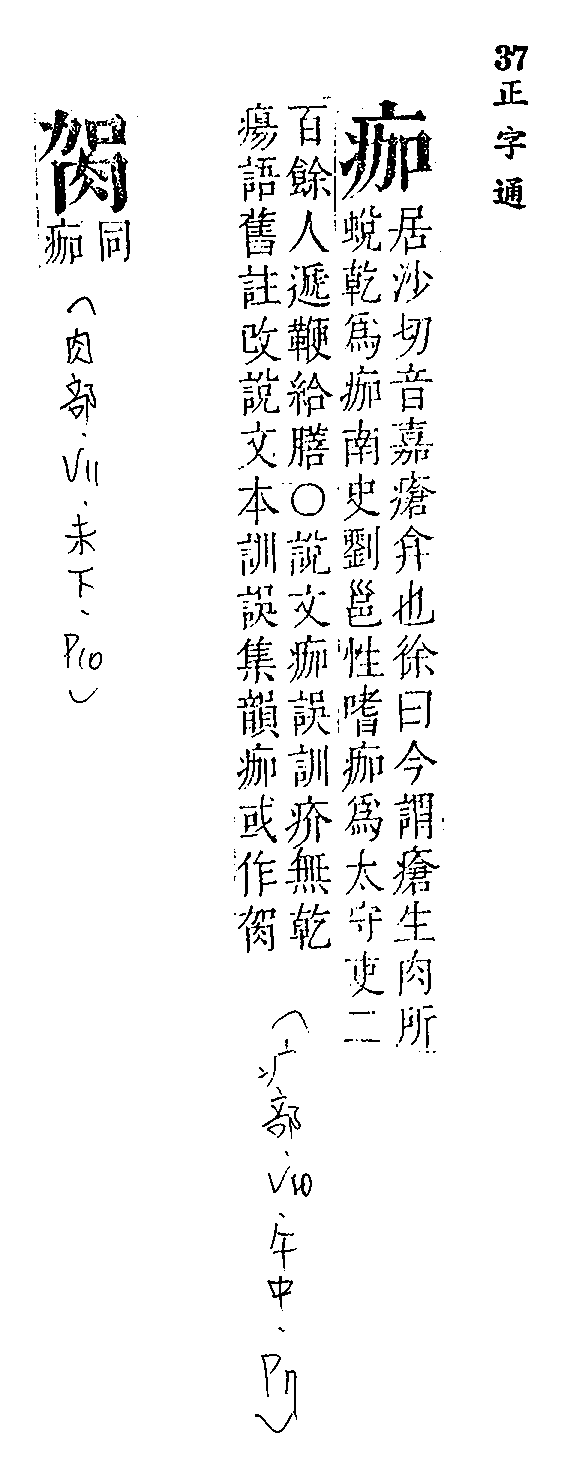 37正字通
痂
居沙切音嘉瘡弇也徐曰今謂瘡生肉所
蛻乾爲痂南史劉邕性嗜痂爲太守吏二
百餘人遞鞭給膳○說文痂誤訓疥無乾
瘍語舊註改說文本訓誤集韻痂或作䐙
(疒部.V10.午中.P17)
䐙
同
痂
(肉部.V11.未下.P10)